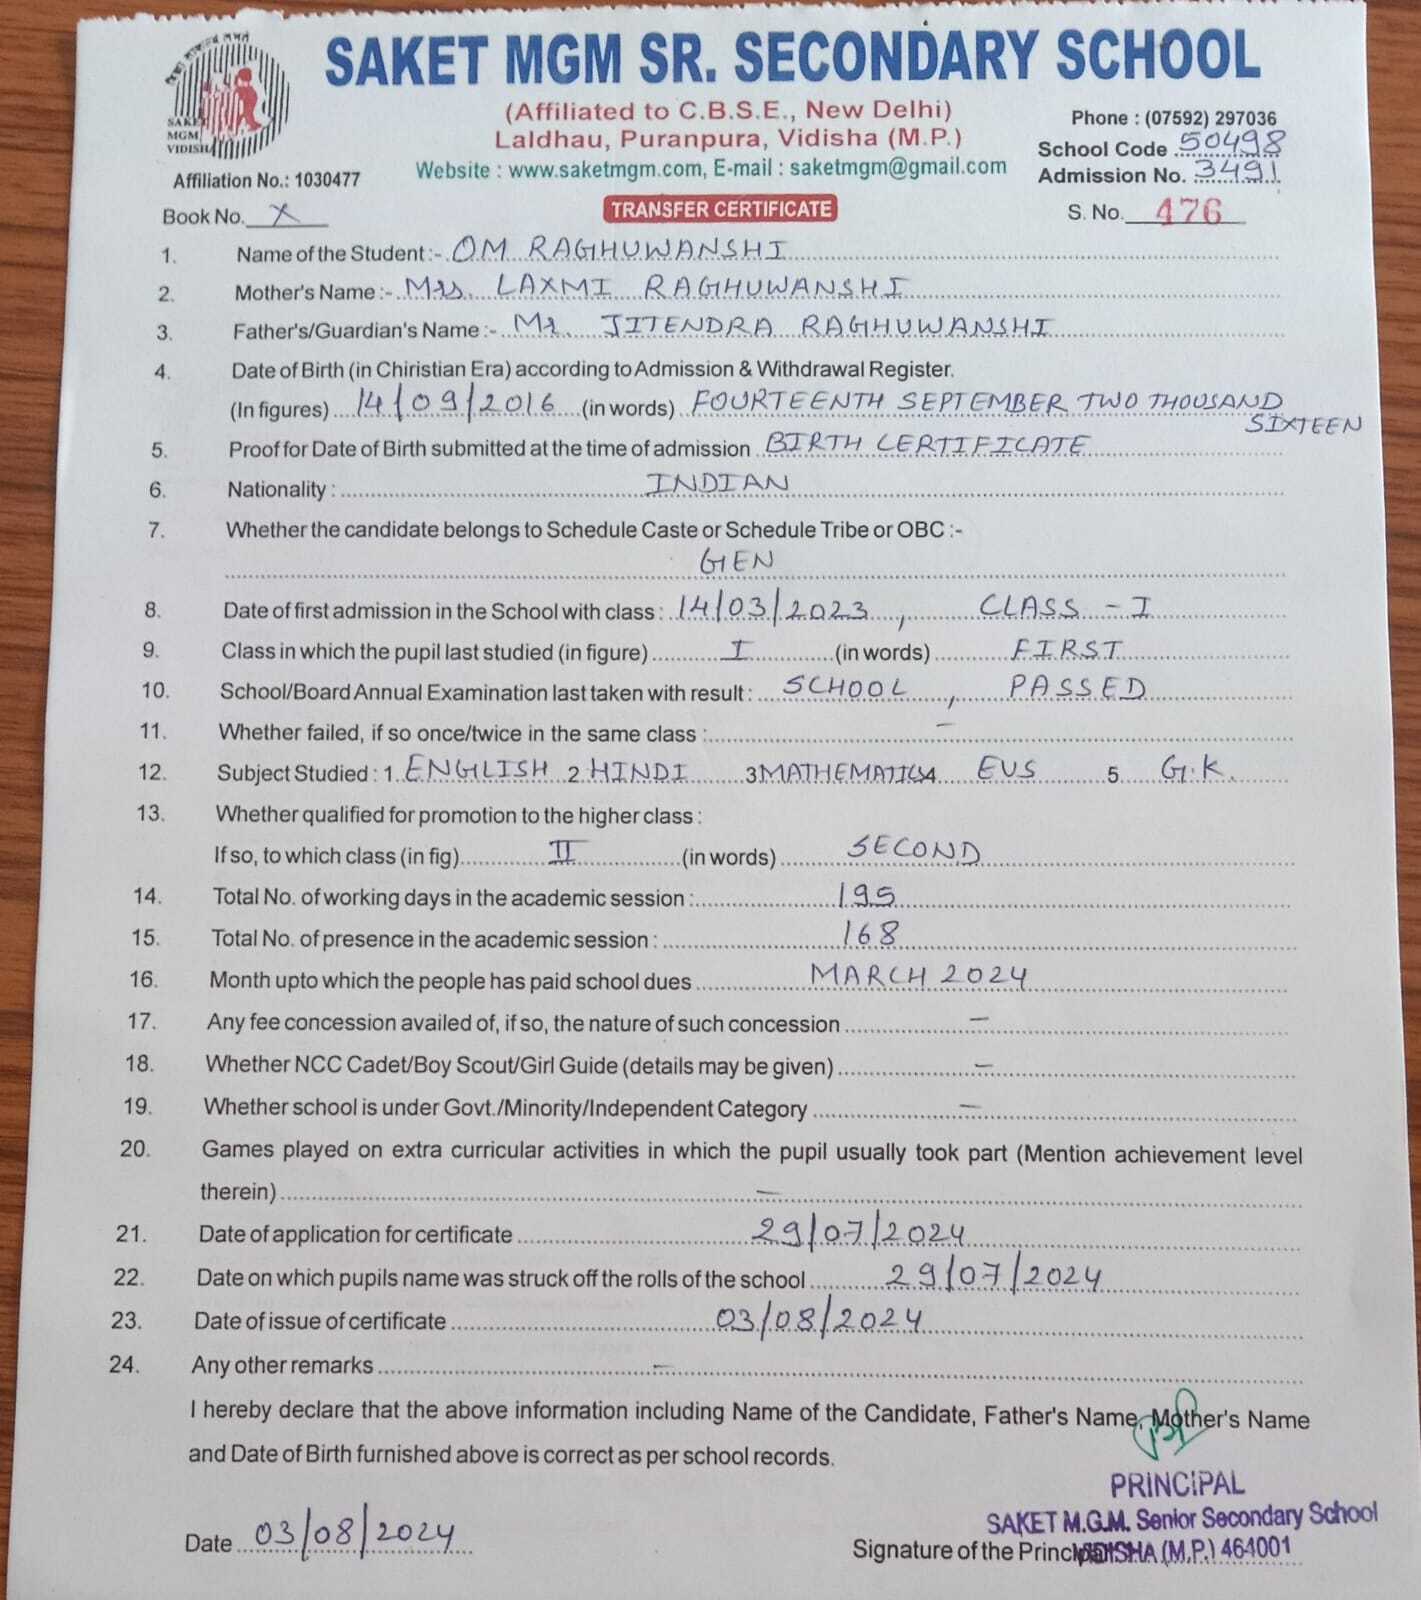 SAKET MGM SR. SECONDARY SCHOOL
(Affiliated to C.B.S.E., New Delhi)
Laldhau, Puranpura, Vidisha (M.P.)
Website : www.saketmgm.com, E-mail : saketmgm@gmail.com
SAKET
MGM
VIDISHA
Affiliation No.: 1030477
Phone : (07592) 297036
School Code 50498
Admission No. 3491
Book No. X
TRANSFER CERTIFICATE
S. No. 476
1. Name of the Student :- OM RAGHUWANSHI
2. Mother's Name :- Mrs. LAXMI RAGHUWANSHI
3. Father's/Guardian's Name :- Mr. JITENDRA RAGHUWANSHI
4. Date of Birth (in Chiristian Era) according to Admission & Withdrawal Register.
(In figures) 14/09/2016 (in words) FOURTEENTH SEPTEMBER TWO THOUSAND
SIXTEEN
5. Proof for Date of Birth submitted at the time of admission BIRTH CERTIFICATE
6. Nationality : INDIAN
7. Whether the candidate belongs to Schedule Caste or Schedule Tribe or OBC :-
GEN
8. Date of first admission in the School with class : 14/03/2023, CLASS - I
9. Class in which the pupil last studied (in figure) I (in words) FIRST
10. School/Board Annual Examination last taken with result : SCHOOL, PASSED
11. Whether failed, if so once/twice in the same class : -
12. Subject Studied : 1. ENGLISH 2 HINDI 3 MATHEMATICS 4 EVS 5 G.K.
13. Whether qualified for promotion to the higher class :
If so, to which class (in fig) II (in words) SECOND
14. Total No. of working days in the academic session : 195
15. Total No. of presence in the academic session : 168
16. Month upto which the people has paid school dues MARCH 2024
17. Any fee concession availed of, if so, the nature of such concession -
18. Whether NCC Cadet/Boy Scout/Girl Guide (details may be given) -
19. Whether school is under Govt./Minority/Independent Category -
20. Games played on extra curricular activities in which the pupil usually took part (Mention achievement level
therein) -
21. Date of application for certificate 29/07/2024
22. Date on which pupils name was struck off the rolls of the school 29/07/2024
23. Date of issue of certificate 03/08/2024
24. Any other remarks -
I hereby declare that the above information including Name of the Candidate, Father's Name, Mother's Name
and Date of Birth furnished above is correct as per school records.
PRINCIPAL
SAKET M.G.M. Senior Secondary School
VIDISHA (M.P.) 464001
Date 03/08/2024
Signature of the Principal